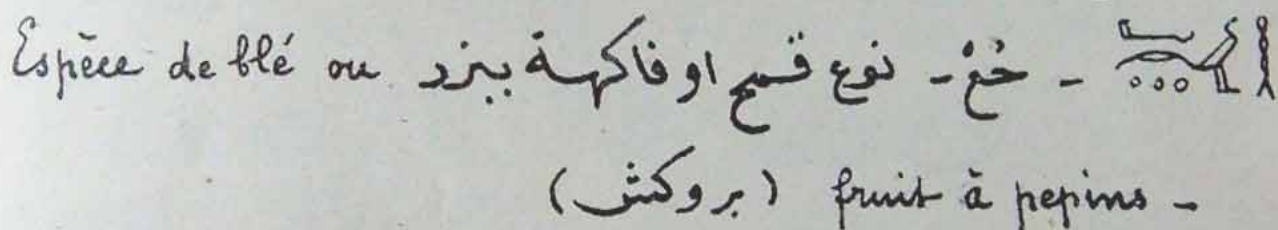 - خُعْ - نوع قمح او فاكهة ببزر Espèce de blé ou
fruit à pepins - (بروكش)